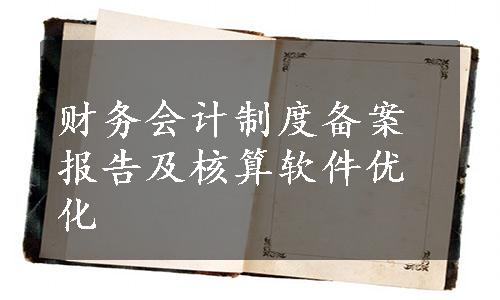 财务会计制度备案
报告及核算软件优
化